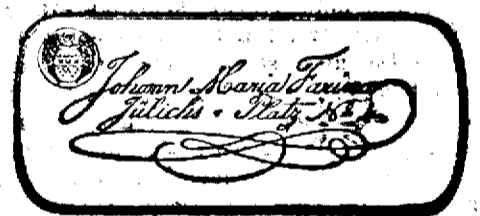 Johann Maria Farina
Jülichs - Platz No 4